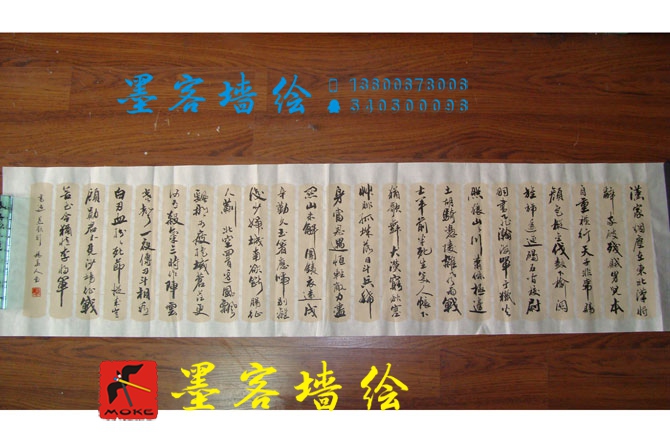 墨客墙绘
漢家烟塵在東北漢將
辭家破殘賊男兒本
自重橫行天子非常賜
顏色摐金伐鼓下榆関
旌旆逶迤碣石間校尉
羽書飛瀚海單于獵火
照狼山山川蕭條極邊
土胡騎憑陵雜風雨戰
士軍前半死生美人帳下
猶歌舞大漠窮秋塞
草腓孤城落日斗兵稀
身當恩遇恒輕敵力盡
関山未解圍鐵衣遠戍
辛勤久玉箸應啼別離
後少婦城南欲斷腸征
人薊北空回首邊風飄
飖那可度絕域蒼茫更
何有殺氣三時作陣雲
寒聲一夜傳刁斗相看
白刃血紛紛死節從来豈
顧勛君不見沙場征戰
苦至今猶憶李將軍
高適燕歌行
MOKE
墨客墙绘